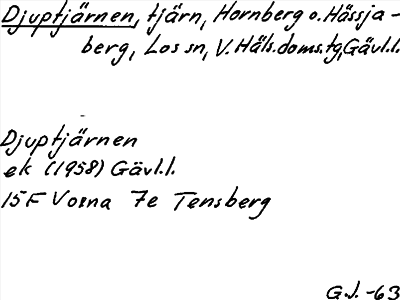 Djuptjärnen, tjärn, Hornberg o. Hässja-
berg, Los sn, V. Häls. doms.tg, Gävl.l.
Djuptjärnen
ek (1958) Gävl.l.
15F Voxna 7e Tensberg
G.J. -63